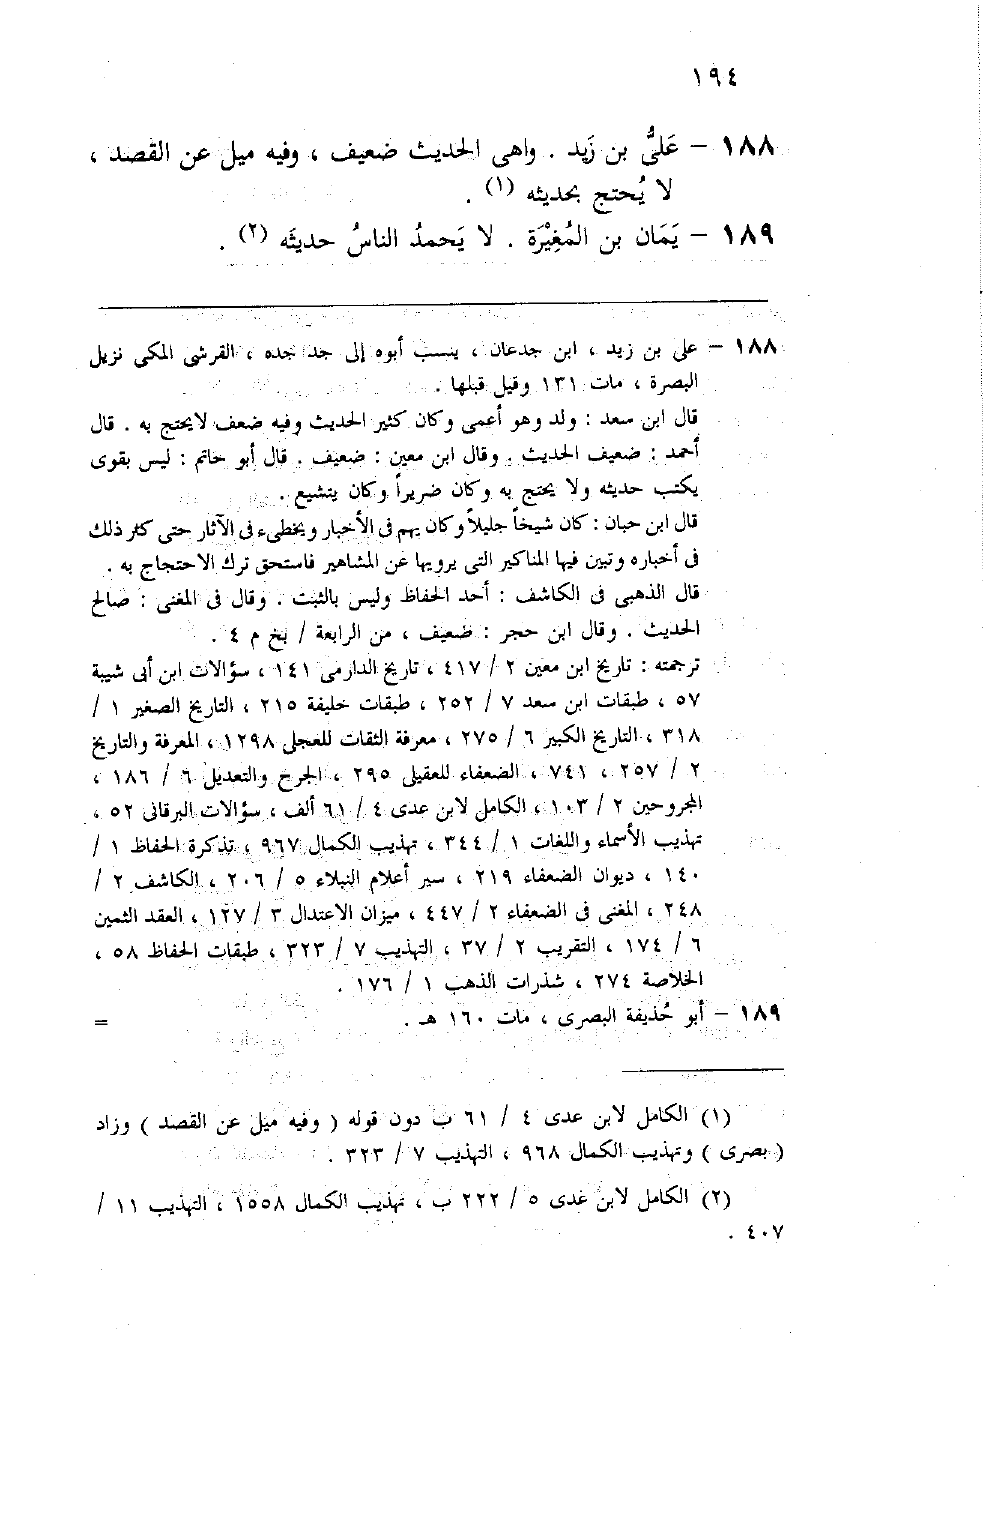 ١٩٤
١٨٨ – عَلىُّ بن زَيد . واهى الحديث ضعيف ، وفيه ميل عن القصد ،
لا يُحتج بحديثه (١) .
١٨٩ – يَمَان بن المُغِيْرَة . لا يَحمدُ الناسُ حديثَه (٢) .
١٨٨ – على بن زيد ، ابن جدعان ، ينسب أبوه إلى جد جده ، القرشى المكى نزيل
البصرة ، مات ١٣١ وقيل قبلها .
قال ابن سعد : ولد وهو أعمى وكان كثير الحديث وفيه ضعف لايحتج به . قال
أحمد : ضعيف الحديث . وقال ابن معين : ضعيف . قال أبو حاتم : ليس بقوى
يكتب حديثه ولا يحتج به وكان ضريراً وكان يتشيع .
قال ابن حبان : كان شيخاً جليلاً وكان يهم فى الأخبار ويخطىء فى الآثار حتى كثر ذلك
فى أخباره وتبين فيها المناكير التى يرويها عن المشاهير فاستحق ترك الاحتجاج به .
قال الذهبى فى الكاشف : أحد الحفاظ وليس بالثبت . وقال فى المغنى : صالح
الحديث . وقال ابن حجر : ضعيف ، من الرابعة / بخ م ٤ .
ترجمته : تاريخ ابن معين ٢ / ٤١٧ ، تاريخ الدارمى ١٤١ ، سؤالات ابن أبى شيبة
٥٧ ، طبقات ابن سعد ٧ / ٢٥٢ ، طبقات خليفة ٢١٥ ، التاريخ الصغير ١ /
٣١٨ ، التاريخ الكبير ٦ / ٢٧٥ ، معرفة الثقات للعجلى ١٢٩٨ ، المعرفة والتاريخ
٢ / ٢٥٧ ، ٧٤١ ، الضعفاء للعقيلى ٢٩٥ ، الجرح والتعديل ٦ / ١٨٦ ،
المجروحين ٢ / ١٠٣ ، الكامل لابن عدى ٤ / ٦١ ألف ، سؤالات البرقانى ٥٢ ،
تهذيب الأسماء واللغات ١ / ٣٤٤ ، تهذيب الكمال ٩٦٧ ، تذكرة الحفاظ ١ /
١٤٠ ، ديوان الضعفاء ٢١٩ ، سير أعلام النبلاء ٥ / ٢٠٦ ، الكاشف ٢ /
٢٤٨ ، المغنى فى الضعفاء ٢ / ٤٤٧ ، ميزان الاعتدال ٣ / ١٢٧ ، العقد الثمين
٦ / ١٧٤ ، التقريب ٢ / ٣٧ ، التهذيب ٧ / ٣٢٣ ، طبقات الحفاظ ٥٨ ،
الخلاصة ٢٧٤ ، شذرات الذهب ١ / ١٧٦ .
١٨٩ – أبو حُذيفة البصرى ، مات ١٦٠ هـ . =
(١) الكامل لابن عدى ٤ / ٦١ ب دون قوله ( وفيه ميل عن القصد ) وزاد
( بصرى ) وتهذيب الكمال ٩٦٨ ، التهذيب ٧ / ٣٢٣ .
(٢) الكامل لابن عدى ٥ / ٢٢٢ ب ، تهذيب الكمال ١٥٥٨ ، التهذيب ١١ /
٤٠٧ .